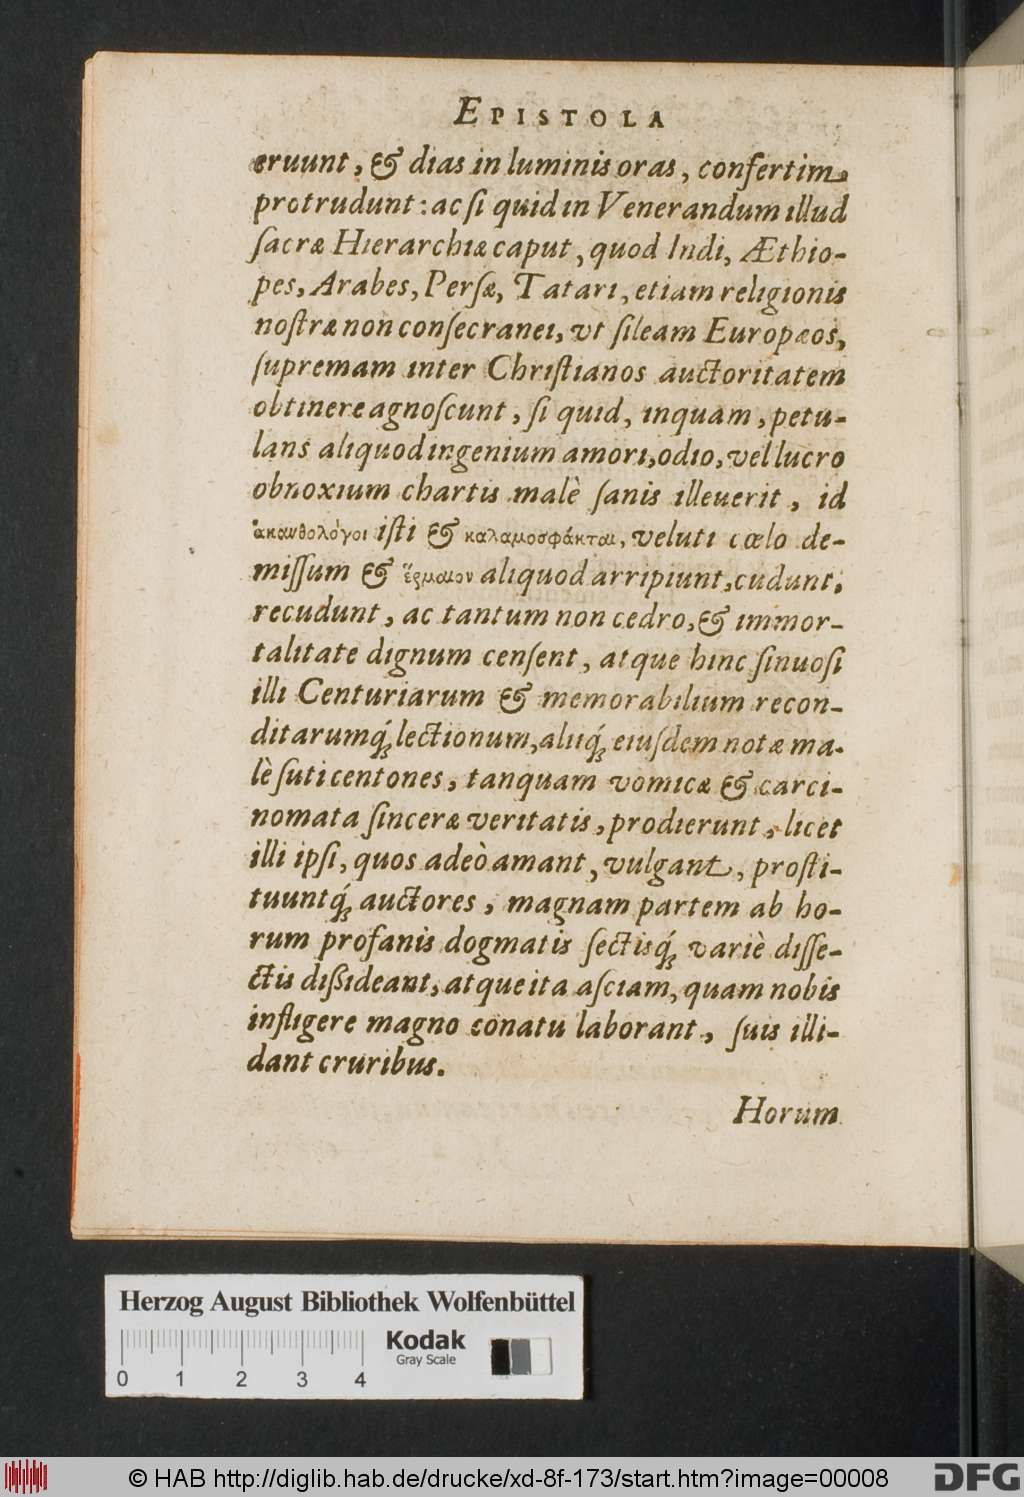 EPISTOLA
eruunt, & dias in luminis oras, confertim
protrudunt: ac ſi quid in Venerandum illud
ſacræ Hierarchiæ caput, quod Indi, Æthio-
pes, Arabes, Perſæ, Tatari, etiam religionis
noſtræ non conſecranei, vt ſileam Europæos,
ſupremam inter Chriſtianos auctoritatem
obtinere agnoſcunt, ſi quid, inquam, petu-
lans aliquod ingenium amori, odio, vel lucro
obnoxium chartis malè ſanis illeuerit, id
ἀκανθολόγοι iſti & καλαμοσφάκται, veluti cœlo de-
miſſum & ἕρμαιον aliquod arripiunt, cudunt,
recudunt, ac tantum non cedro, & immor-
talitate dignum cenſent, atque hinc ſinuoſi
illi Centuriarum & memorabilium recon-
ditarumq́; lectionum, aliíq́; eiuſdem notæ ma-
lè ſuti centones, tanquam vomicæ & carci-
nomata ſinceræ veritatis, prodierunt, licet
illi ipſi, quos adeò amant, vulgant, proſti-
tuuntq́; auctores, magnam partem ab ho-
rum profanis dogmatis ſectisq́; variè diſſe-
ctis diſsideant, atque ita aſciam, quam nobis
infligere magno conatu laborant, ſuis illi-
dant cruribus.
Horum
Herzog August Bibliothek Wolfenbüttel
Kodak
Gray Scale
0 1 2 3 4
© HAB http://diglib.hab.de/drucke/xd-8f-173/start.htm?image=00008
DFG